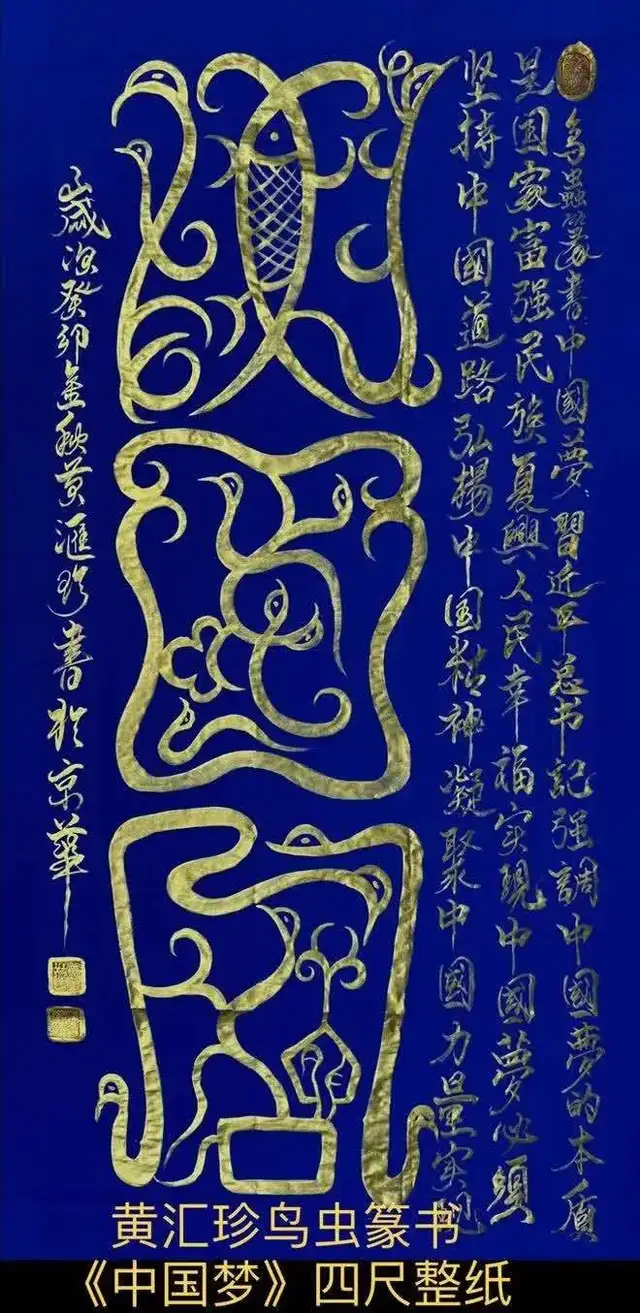 鸟蟲篆書中國夢習近平总书記强調中國夢的本质
是国家富强民族复興人民幸福实現中國夢必須
坚持中國道路弘揚中国精神凝聚中國力量实现
歲次癸卯金秋黄滙珍書於京華
黄汇珍鸟虫篆书
《中国梦》四尺整纸